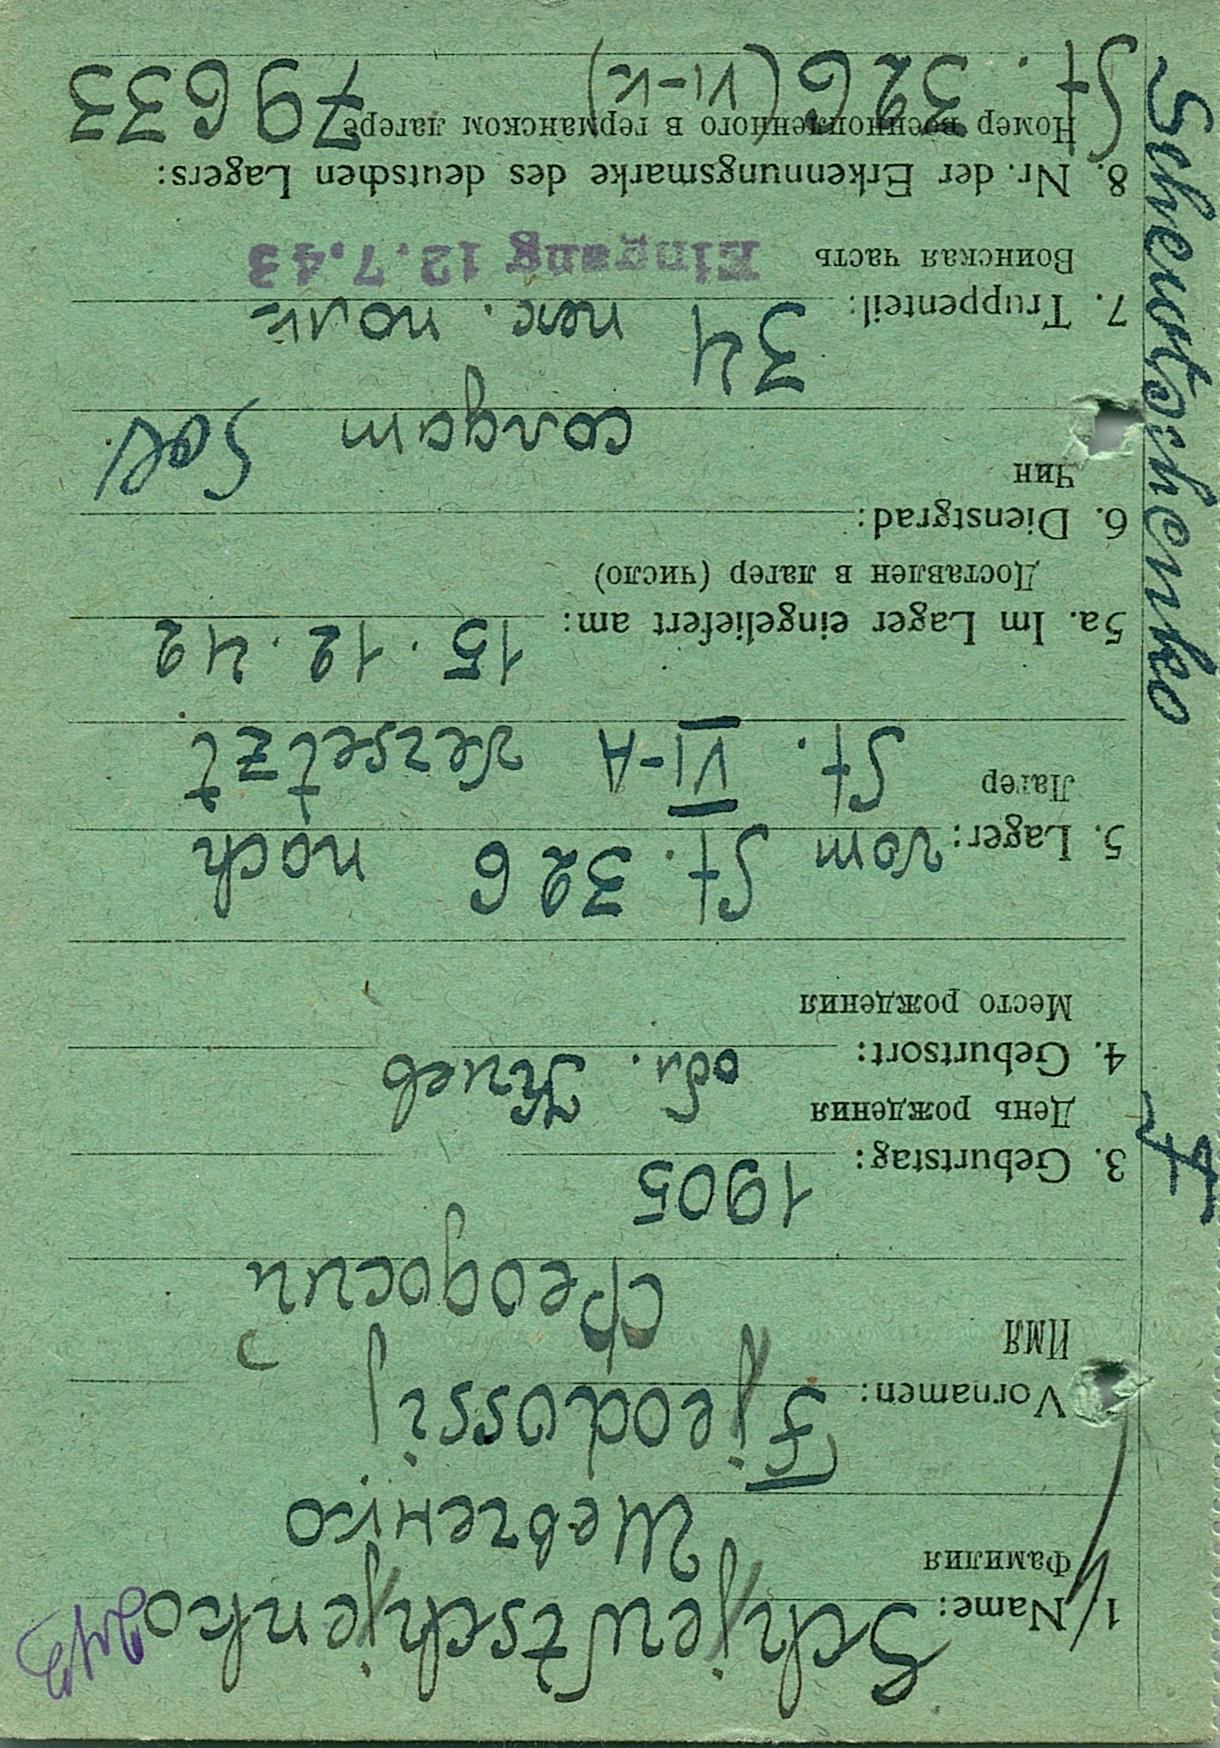 1. Name: Schjewtschjenko
Фамилия Шевченко
Vornamen: Fjeodossij
ИМЯ Феодосий
3. Geburtstag: 1905
День рождения
4. Geburtsort: обл. Киев
Место рождения
5. Lager: vom St. 326 nach
Лагер St. VI-A versetzt
5a. Im Lager eingeliefert am: 15.12.42
Доставлен в лагер (число)
6. Dienstgrad:
Чин солдат Sol
7. Truppenteil: 34 пех. полк
Воинская часть Eingang 12.7.43
8. Nr. der Erkennungsmarke des deutschen Lagers:
Номер военнопленного в германском лагере 79633
St. 326 (VI-K)
Schewtschenko F